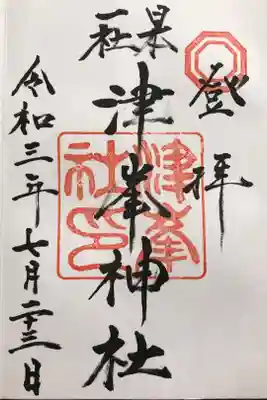 登拝
日本
一社
津峯神社
津峯
社印
令和三年七月二十三日